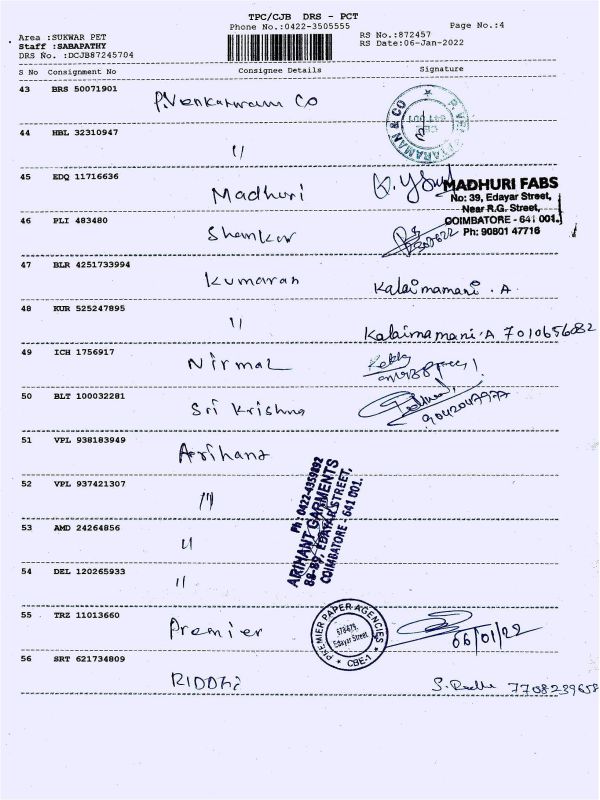 TPC/CJB DRS - PCT
Phone No.:0422-3505555
Page No.:4
Area :SUKWAR PET
Staff :SABAPATHY
DRS No. :DCJB87245704
RS No.:872457
RS Date:06-Jan-2022
S No Consignment No Consignee Details Signature
43 BRS 50071901 P.Venkatraam Co
P. VENKATARAMAN & CO
CBE
641 001
44 HBL 32310947 "
45 EDQ 11716636 Madhuri
MADHURI FABS
No: 39, Edayar Street,
Near R.G. Street,
COIMBATORE - 641 001.
Ph: 90801 47716
46 PLI 483480 Shankar
47 BLR 4251733994 Kumaran Kalaimamani . A
48 KUR 525247895 " Kalaimamani.A 7010656082
49 ICH 1756917 Nirmal
50 BLT 100032281 Sri Krishna
51 VPL 938183949 Arihant
52 VPL 937421307 "
Ph : 0422-4359892
ARIHANT GARMENTS
88-89, EDAYAR STREET,
COIMBATORE - 641 001.
53 AMD 24264856 "
54 DEL 120265933 "
55 TRZ 11013660 Premier
PREMIER PAPER AGENCIES
Edayar Street
CBE-1
06/01/22
56 SRT 621734809 RIDDHI 7708239658